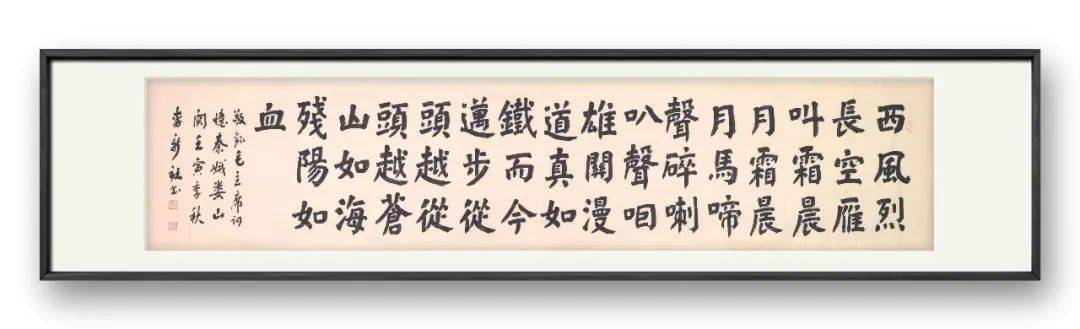 西風烈
長空雁
叫霜晨
月霜晨
月馬啼
聲碎喇
叭聲咽
雄關漫
道真如
鐵而今
邁步從
頭越從
頭越蒼
山如海
殘陽如
血
敬錄毛主席詞
憶秦娥婁山
關壬寅季秋
新社书